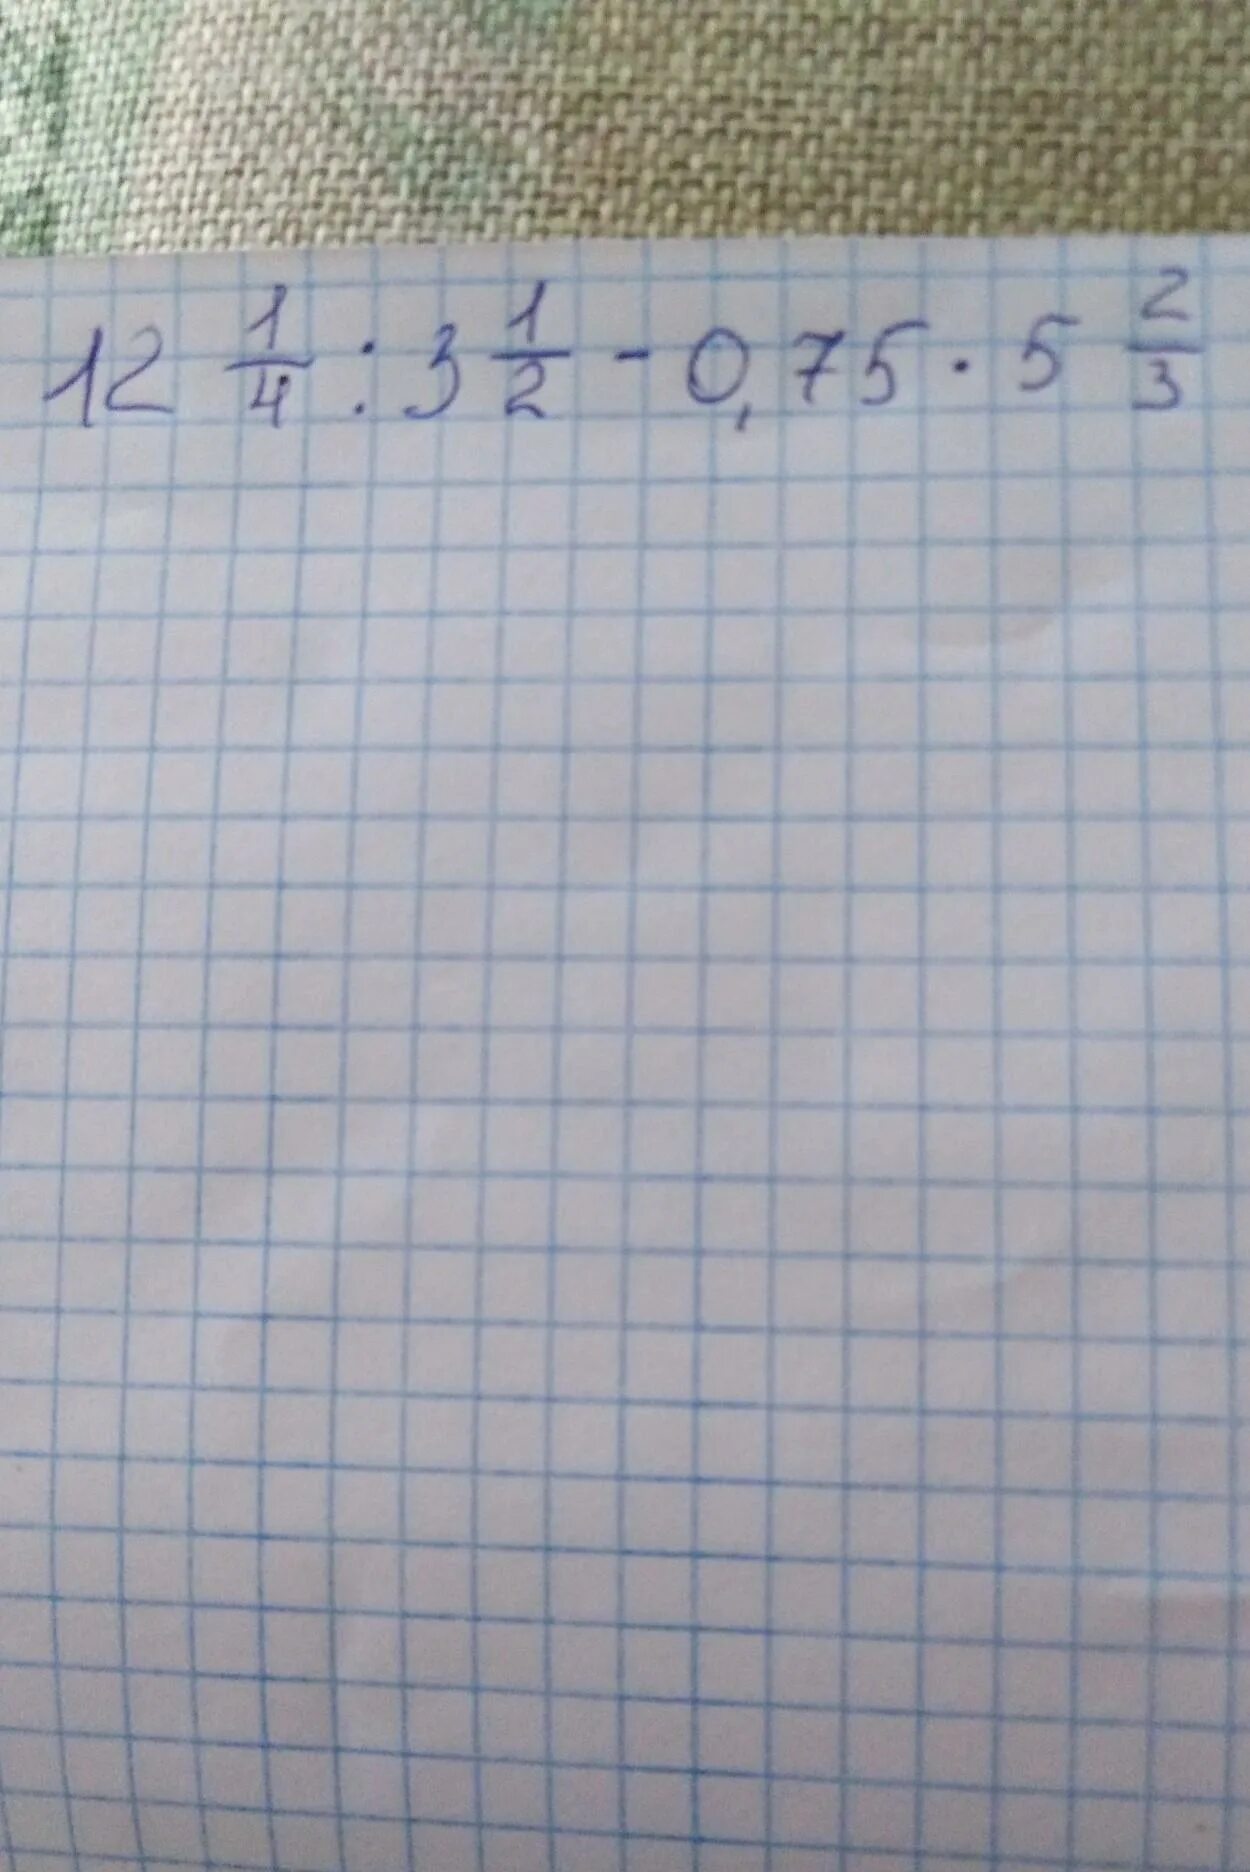 12 1/4 : 3 1/2 - 0,75 · 5 2/3